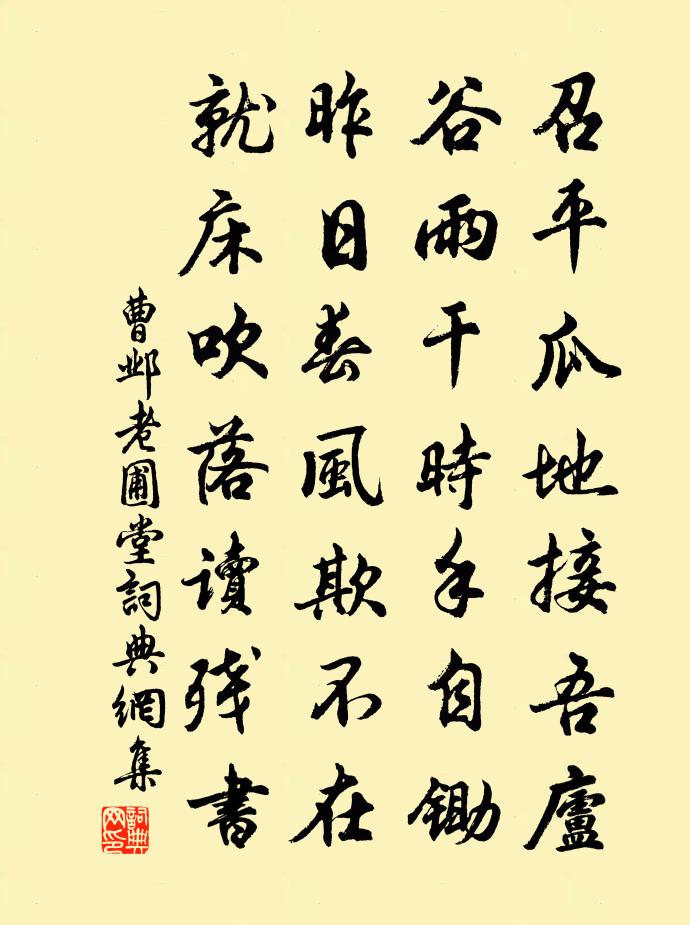 召平瓜地接吾廬
谷雨干時手自鋤
昨日春風欺不在
就床吹落讀残書
曹邺老圃堂詞典網集
詞典網印